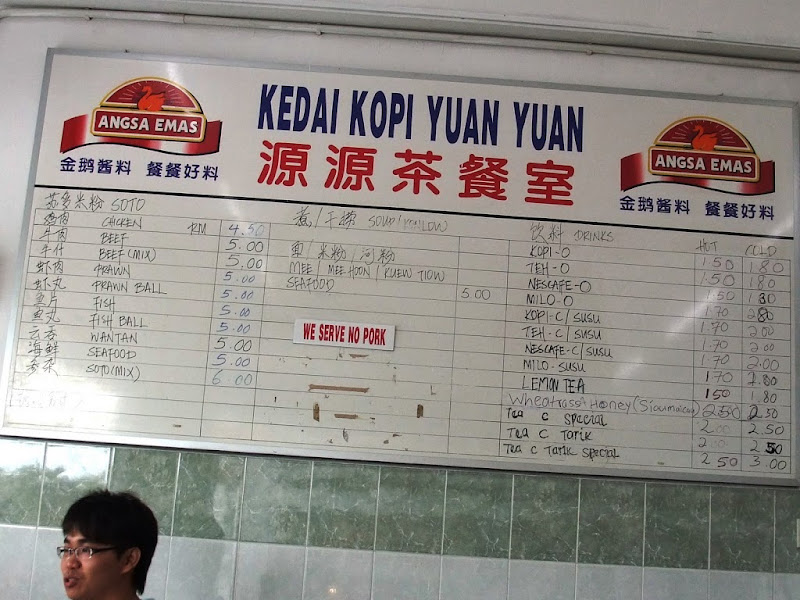 ANGSA EMAS
金鹅酱料 餐餐好料
KEDAI KOPI YUAN YUAN
源源茶餐室
ANGSA EMAS
金鹅酱料 餐餐好料
苏多米粉 SOTO
鸡肉 CHICKEN RM 4.50
牛肉 BEEF 5.00
牛什 BEEF (MIX) 5.00
虾肉 PRAWN 5.00
虾丸 PRAWN BALL 5.00
鱼片 FISH 5.00
鱼丸 FISH BALL 5.00
云吞 WANTAN 5.00
海鲜 SEAFOOD 5.00
SOTO (MIX) 6.00
SOUP / KONLOW
面/米粉/河粉
MEE / MEE HOON / KUEW TIOW
SEAFOOD 5.00
WE SERVE NO PORK
饮料 DRINKS HOT COLD
KOPI-O 1.50 1.80
TEH-O 1.50 1.80
NESCAFE-O 1.50 1.80
MILO-O 1.70
KOPI-C / SUSU 1.70 2.00
TEH-C / SUSU 1.70 2.00
NESCAFE-C / SUSU 1.70 2.00
MILO-SUSU 1.70 1.80
LEMON TEA 1.50 1.80
Honey 2.50 2.50
Tea C Special 2.50
Tea C Tarik 2.50
Tea C Tarik Special 2.50 3.00